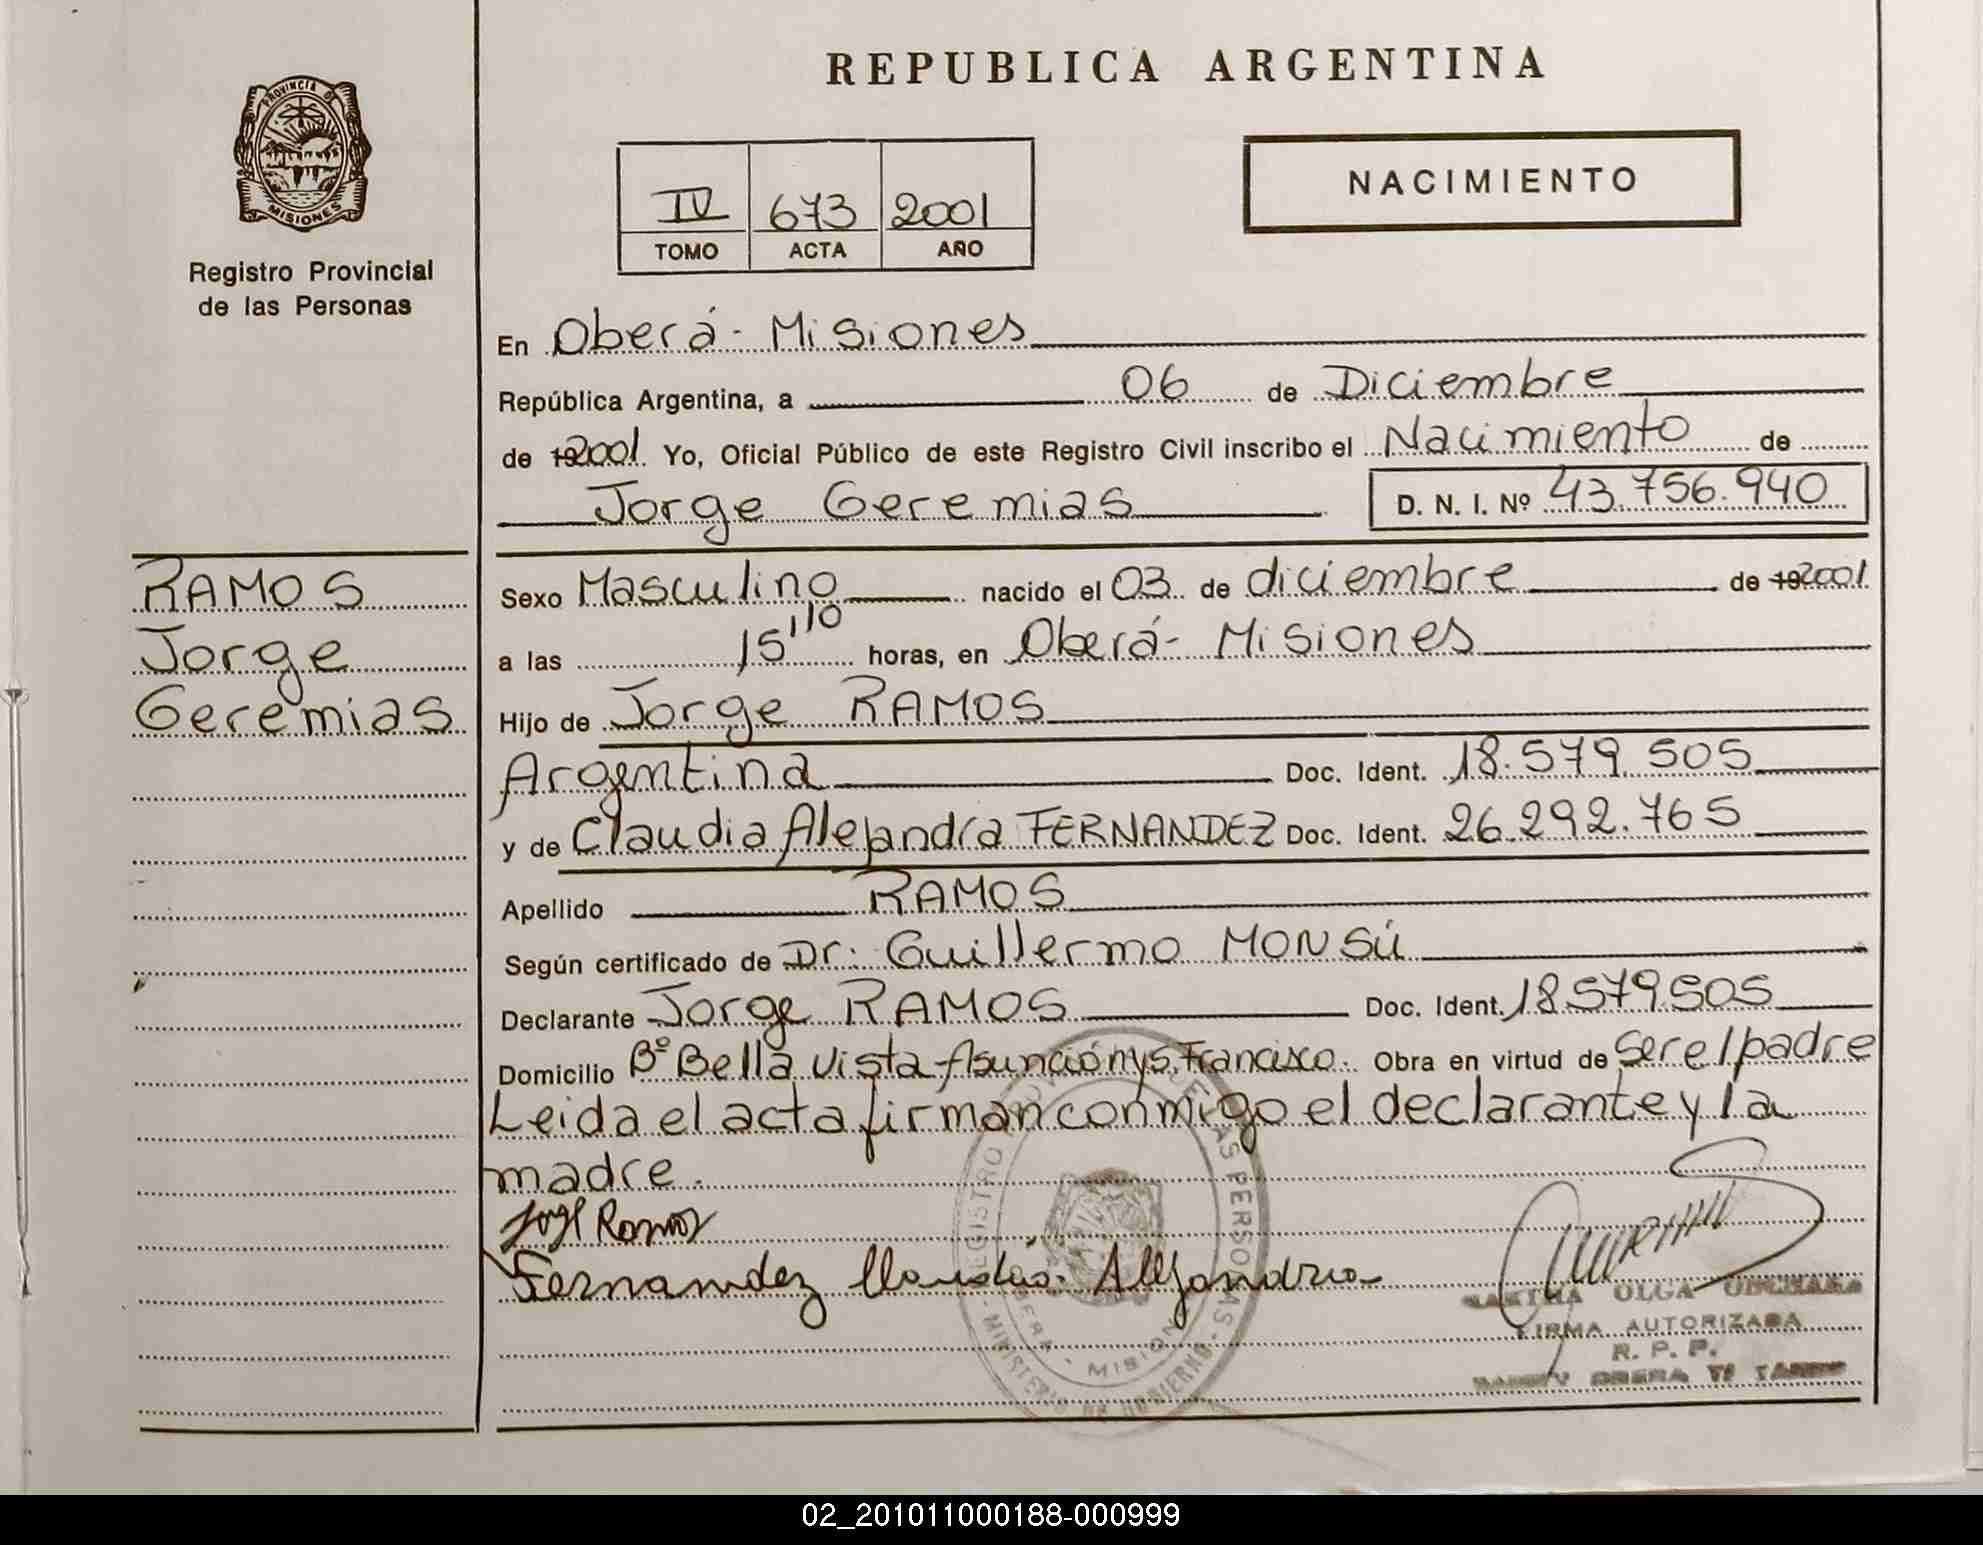 REPUBLICA ARGENTINA
PROVINCIA DE
MISIONES
Registro Provincial
de las Personas
IV 673 2001
TOMO ACTA AÑO
NACIMIENTO
En Oberá - Misiones
República Argentina, a 06 de Diciembre
de 192001. Yo, Oficial Público de este Registro Civil inscribo el Nacimiento de
Jorge Geremias D. N. I. Nº 43.756.940
RAMOS
Jorge
Geremias
Sexo Masculino nacido el 03 de diciembre de 192001
a las 15'10 horas, en Oberá - Misiones
Hijo de Jorge RAMOS
Argentina Doc. Ident. 18.579.505
y de Claudia Alejandra FERNANDEZ Doc. Ident. 26.292.765
Apellido RAMOS
Según certificado de Dr. Guillermo MONSÚ
Declarante Jorge RAMOS Doc. Ident. 18.579.505
Domicilio Bº Bella Vista - Asunción y S. Francisco. Obra en virtud de ser el padre
Leida el acta firman conmigo el declarante y la
madre.
Jorge Ramos
Fernandez Claudia Alejandra
REGISTRO PROVINCIAL DE LAS PERSONAS
OBERA - MISIONES
MINISTERIO DE GOBIERNO
MARTHA OLGA
FIRMA AUTORIZADA
R. P. P.
OBERA
02_201011000188-000999